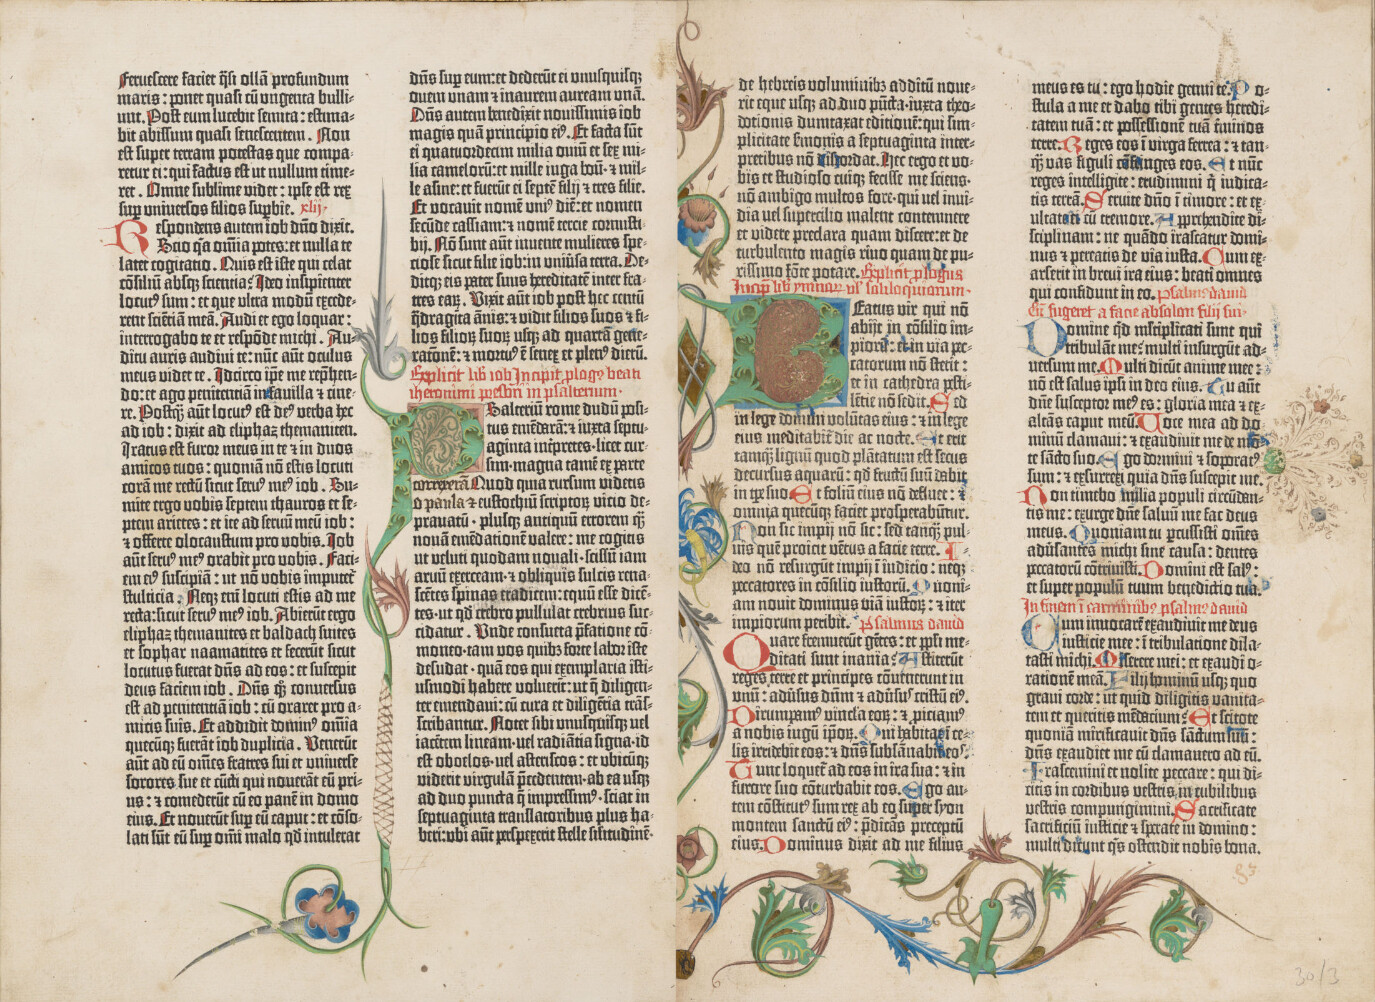 feruescere faciet q̄si ollā profundum
maris: ponet quasi cū vngenta bulli-
unt. Post eum lucebit semita: estima-
bit abissum quasi senescentem. Non
est super terram potestas que compa-
retur ei: qui factus est ut nullum time-
ret. Omne sublime videt: ipse est rex
sup vniuersos filios supbie. xlij.
Respondens autem iob dño dixit.
Scio q̄a om̄ia potes: et nulla te
latet cogitatio. Quis est iste qui celat
cōsiliū absq; scientia? Ideo insipienter
locut⁹ sum: et que ultra modū excede-
rent sciētiam meā. Audi et ego loquar:
interrogabo te et respōde michi. Au-
ditu auris audiui te: nūc aūt oculus
meus videt te. Idcirco ip̄e me rep̄hen-
do: et ago penitentiā in fauilla ⁊ cine-
re. Postq̄ aūt locut⁹ est de⁹ verba hec
ad iob: dixit ad eliphaz themaniten.
Iratus est furor meus in te ⁊ in duos
amicos tuos: quoniā nō estis locuti
corā me rectū sicut seru⁹ me⁹ iob. Su-
mite ergo vobis septem thauros et se-
ptem arietes: et ite ad seruū meū iob:
⁊ offerte olocaustum pro vobis. Iob
aūt seru⁹ me⁹ orabit pro vobis. Faci-
em ei⁹ suscipiā: ut nō vobis imputet̄
stulticia. Neq; em̄ locuti estis ad me
recta: sicut seru⁹ me⁹ iob. Abierūt ergo
eliphaz themanites et baldach suites
et sophar naamatites et fecerūt sicut
locutus fuerat dn̄s ad eos: et suscepit
deus faciem iob. Dn̄s q̄ conuersus
est ad penitentiā iob: cū oraret pro a-
micis suis. Et addidit domin⁹ om̄ia
quecūq; fuerāt iob duplicia. Venerūt
aūt ad eū om̄es fratres sui et vniuerse
sorores sue et cūcti qui nouerāt eū pri-
us: ⁊ comederūt cū eo panē in domo
eius. Et mouerūt sup eū caput: et cōso-
lati sūt eū sup om̄i malo qd̄ intulerat
dn̄s sup eum: et dederūt ei vnusquisq;
ouem vnam ⁊ inaurem auream vnā.
Dn̄s autem benedixit nouissimis iob
magis quā principio ei⁹. Et facta sūt
ei quatuordecim milia ouiū et sex mi-
lia camelorū: et mille iuga boū: ⁊ mil-
le asine: et fuerūt ei septē filij ⁊ tres filie.
Et vocauit nomē vni⁹ diē: et nomen
secūde cassiam: ⁊ nomē tercie cornusti-
bij. Nō sunt aūt inuente mulieres spe-
ciose sicut filie iob: in vniūsa terra. De-
ditq; eis pater suus hereditatē inter fra-
tres eaꝝ. Vixit aūt iob post hec centū
q̄dragīta ānis: ⁊ vidit filios suos ⁊ fi-
lios filioꝝ suoꝝ usq; ad quartā gene-
rationē: ⁊ mortu⁹ ē senex et plen⁹ dierū.
Explicit lib iob Incipit plog⁹ beati
iheronimi presbri in psalterium.
Psalteriū rome dudū posi-
tus emēdarā: ⁊ iuxta septu-
aginta int̄pretes. licet cur-
sim. magna tamē ex parte
correxerā. Quod quia rursum videtis
o paula ⁊ eustochiū scriptoꝝ vicio de-
prauatū. plusq; antiquū errorem q̄
nouā emēdationē valere: me cogitis
ut veluti quodam nouali. scissū iam
aruū exerceam. ⁊ obliquis sulcis rena-
scētes spinas eradicem: equū esse dicē-
tes. ut qd̄ crebro pullulat crebrius suc-
cidatur. Vnde consueta p̄fatione cō-
moneo. tam vos quib; forte labor iste
desudat. quā eos qui exemplaria isti-
usmodi habere voluerīt: ut q̄ diligen-
ter emendaui: cū cura et diligētia trās-
scribantur. Notet sibi vnusquisq; vel
iacētem lineam. vel radiātia signa. id
est obelos. vel astericos: et ubicūq;
viderit virgulā p̄cedentem. ab ea usq;
ad duo puncta q̄ impressim⁹. sciat in
septuaginta translatoribus plus ha-
beri: ubi aūt perspexerit stelle silitudinē.
de hebreis voluminib; additū noue-
rit eque usq; ad duo pūcta. iuxta theo-
dotionis dumtaxat editionē: qui sim-
plicitate s̄monis a septuaginta inter-
pretibus nō discordat. Hec ergo et vo-
bis et studioso cuiq; fecisse me sciens.
nō ambigo multos fore. qui vel inui-
dia vel supercilio malent contennere
et videre preclara quam discere: et de
turbulento magis riuo quam de pu-
rissimo fōte potare. Explicit plogus
Incip lib ymnoꝝ vl' soliloquiorum.
Beatus vir qui nō
abijt in cōsilio im-
pioꝝ: et in via pec-
catorum nō stetit:
et in cathedra pesti-
lētie nō sedit. Sed
in lege domini volūtas eius: ⁊ in lege
eius meditabit̄ die ac nocte. Et erit
tamq̄ lignū quod plātatum est secus
decursus aquarū: qd̄ fructū suū dabit
in tp̄r suo. Et foliū eius nō defluet: ⁊
omnia quecūq; faciet prosperabūtur.
Non sic impij nō sic: sed tamq̄ pul-
uis quē proicit vētus a facie terre. I-
deo nō resurgūt impij ī iudicio: neq;
peccatores in cōsilio iustorū. Quoni-
am nouit dominus viā iustoꝝ: ⁊ iter
impiorum peribit. Psalmus dauid
Quare fremuerūt gētes: et pp̄li me-
ditati sunt inania? Astiterūt
reges terre et principes cōuenerunt in
vnū: adūsus dn̄m ⁊ adūsus cristū ei⁹.
Dirumpam⁹ vincla eoꝝ: ⁊ piciam⁹
a nobis iugū ip̄oꝝ. Qui habitat ī ce-
lis irridebit eos: ⁊ dn̄s subsānabit eos.
Tunc loquet̄ ad eos in ira sua: ⁊ in
furore suo cōturbabit eos. Ego au-
tem cōstitut⁹ sum rex ab eo super syon
montem sanctū ei⁹: p̄dicās preceptū
eius. Dominus dixit ad me filius
meus es tu: ego hodie genui te. Po-
stula a me et dabo tibi gentes heredi-
tatem tuā: et possessionē tuā t̄minos
terre. Reges eos ī virga ferrea: ⁊ tan-
q̄ vas figuli cōfringes eos. Et nūc
reges intelligite: erudimini q̄ iudica-
tis terrā. Seruite dn̄o ī timore: et ex-
ultate ei cū tremore. Apprehendite di-
sciplinam: ne quādo irascatur domi-
nus ⁊ pereatis de via iusta. Cum ex-
arserit in breui ira eius: beati omnes
qui confidunt in eo. Psalmus dauid
Cū fugeret a facie absolon filij sui.
Domine qd̄ m̄ltiplicati sunt qui
tribulāt me? multi insurgūt ad-
uersum me. Multi dicūt anime mee:
nō est salus ip̄i in deo eius. Tu aūt
dn̄e susceptor me⁹ es: gloria mea ⁊ ex-
altās caput meū. Voce mea ad do-
minū clamaui: ⁊ exaudiuit me de mō-
te sācto suo. Ego dormiui ⁊ soporat⁹
sum: ⁊ exsurrexi quia dn̄s suscepit me.
Non timebo milia populi circūdan-
tis me: exurge dn̄e saluū me fac deus
meus. Quoniam tu percussisti om̄es
adūsantes michi sine causa: dentes
peccatorū cōtriuisti. Domini est sal⁹:
et super populū tuum benedictio tua.
In finem ī carminib; psalm⁹ dauid
Cum inuocarē exaudiuit me deus
iusticie mee: ī tribulatione dila-
tasti michi. Miserere mei: et exaudi o-
rationē meā. Filij hominū usq; quo
graui corde: ut quid diligitis vanita-
tem et queritis mēdacium? Et scitote
quoniā mirificauit dn̄s sāctum suū:
dn̄s exaudiet me cū clamauero ad eū.
Irascemini et nolite peccare: qui di-
citis in cordibus vestris in cubilibus
vestris compungimini. Sacrificate
sacrificiū iusticie ⁊ sperate in domino:
multi dicunt q̄s ostendit nobis bona.
30/3